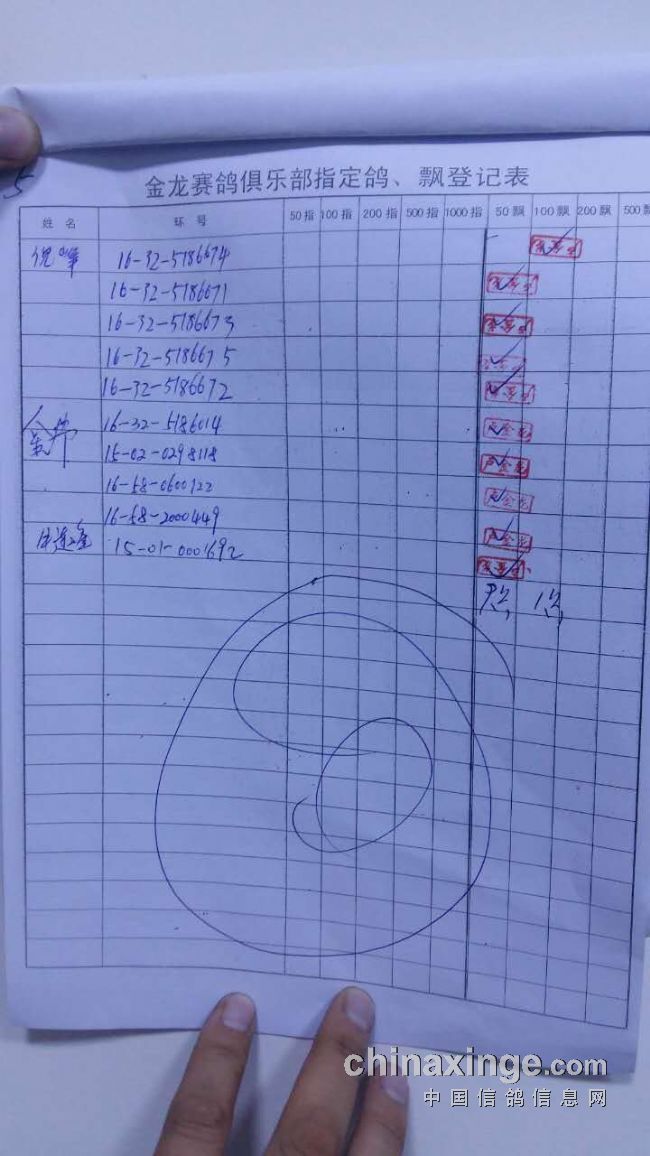 5
金龙赛鸽俱乐部指定鸽、飘登记表
姓 名 环 号 50指 100指 200指 500指 1000指 50飘 100飘 200飘 500飘
倪峰 16-32-5186674
16-32-5186671
16-32-5186673
16-32-5186675
16-32-5186672
16-32-5186014
15-02-0298118
16-58-0600122
16-58-2000449
15-01-0001692
chinaxinge.com
中国信鸽信息网